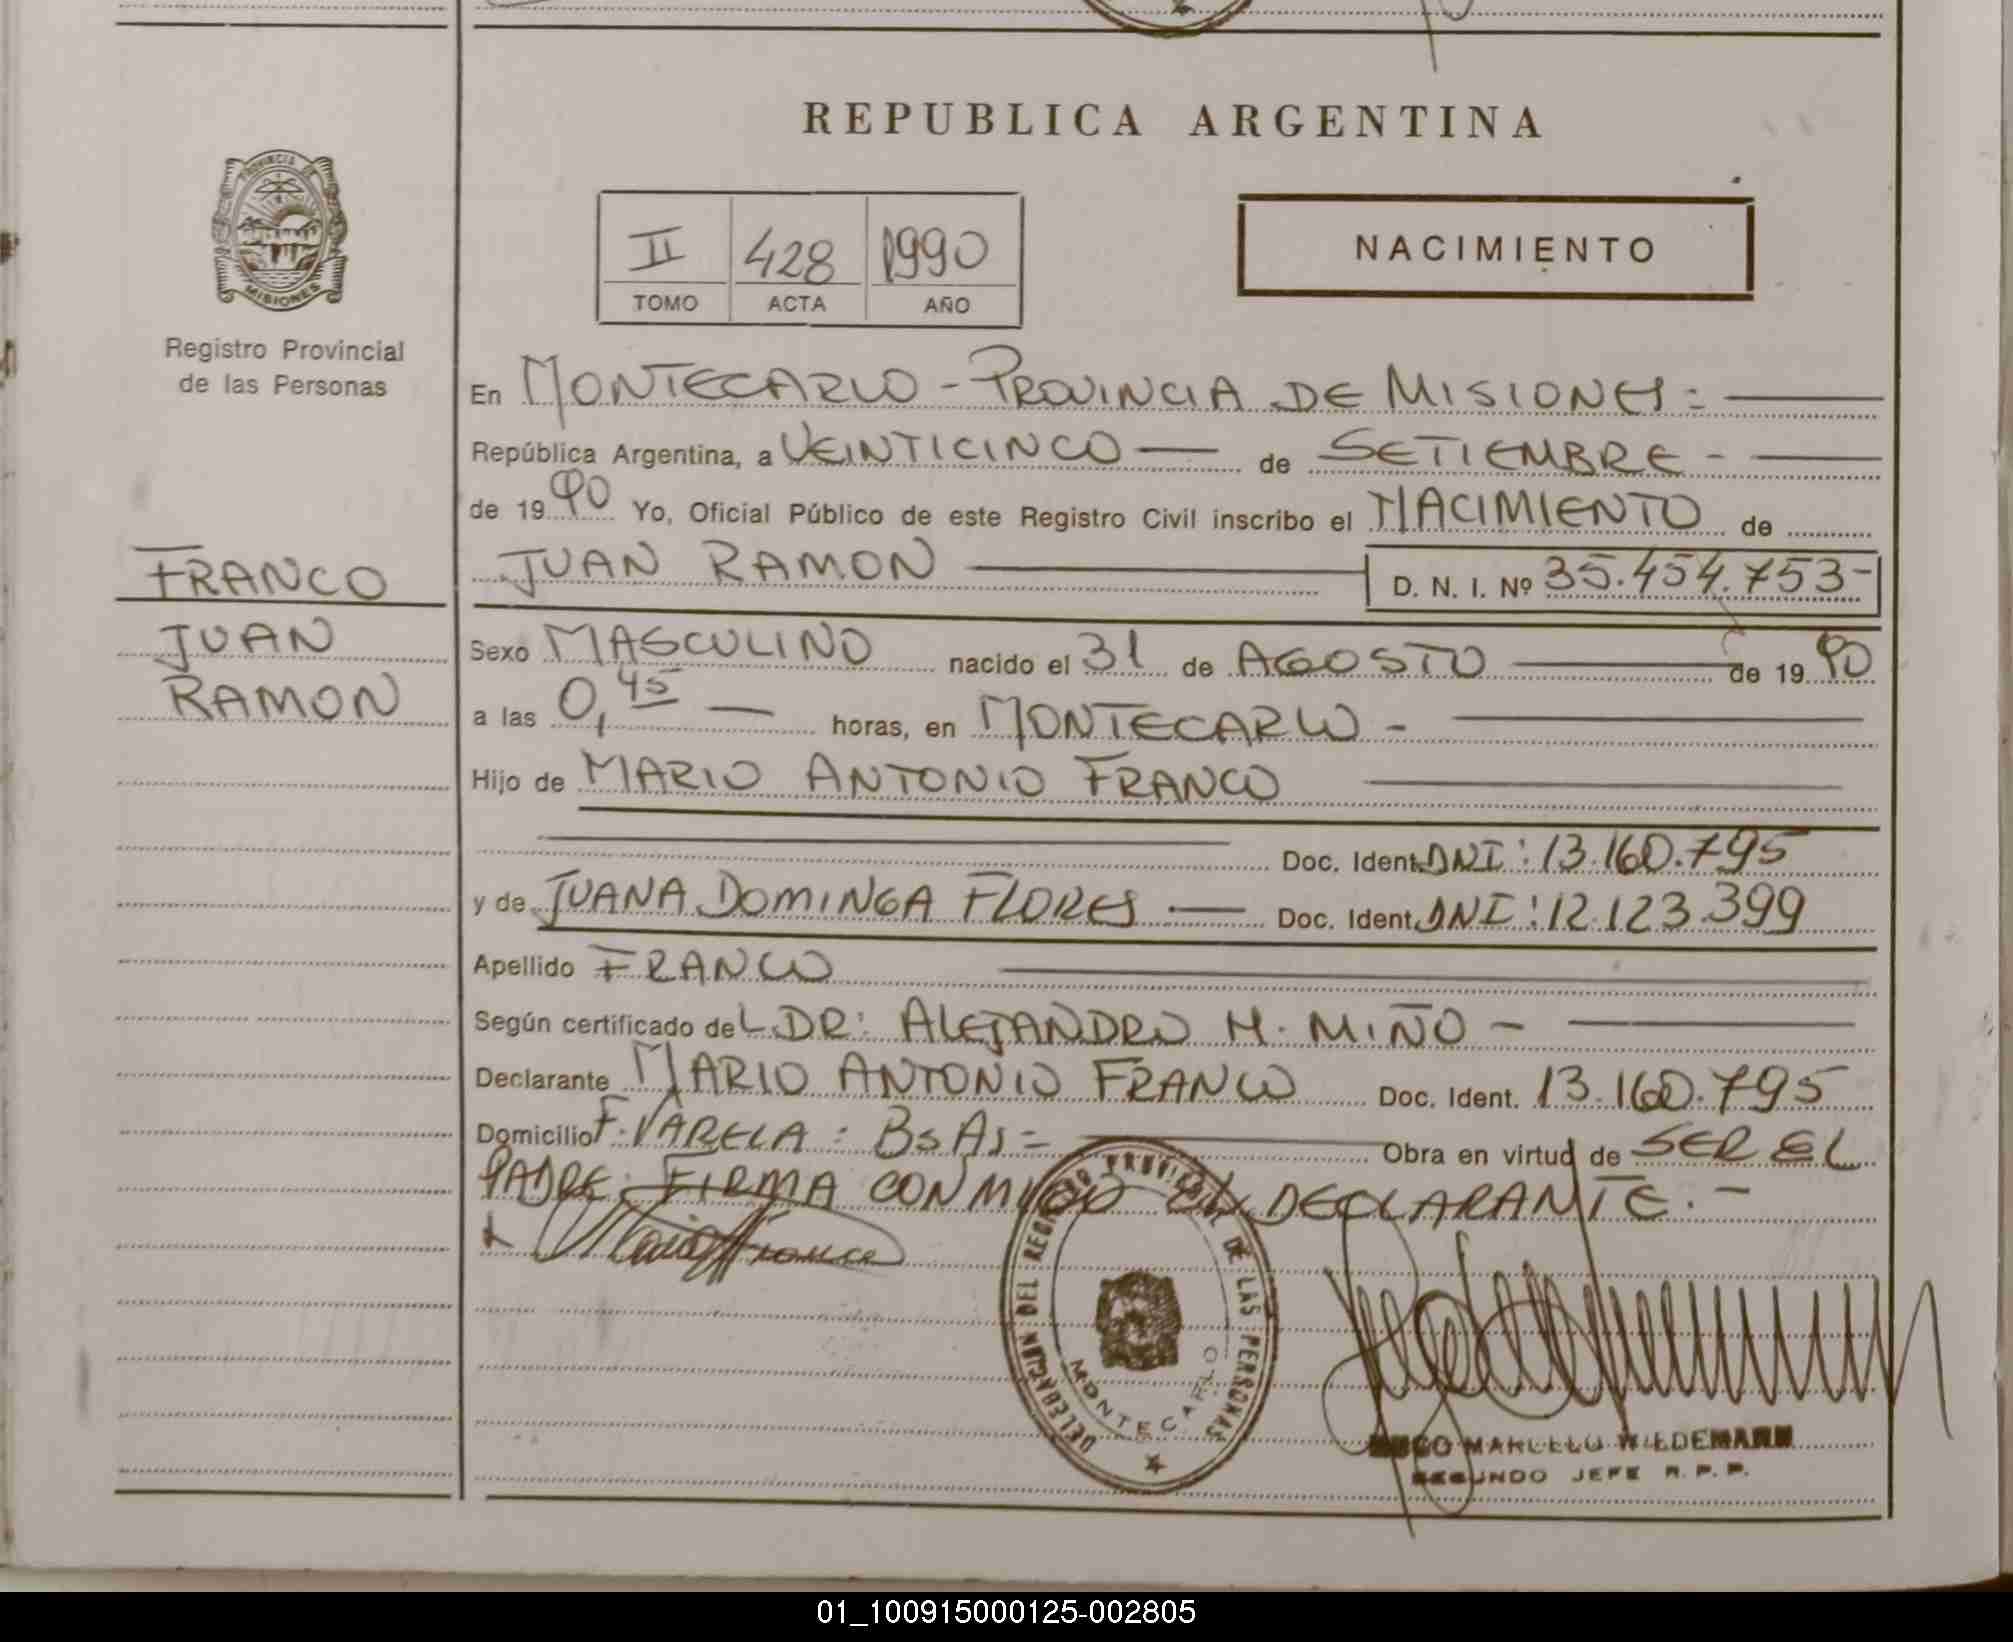 REPUBLICA ARGENTINA
PROVINCIA DE MISIONES
Registro Provincial
de las Personas
II 428 1990
TOMO ACTA AÑO
NACIMIENTO
En MONTECARLO - PROVINCIA DE MISIONES =
República Argentina, a VEINTICINCO — de SETIEMBRE -
de 1990 Yo, Oficial Público de este Registro Civil inscribo el NACIMIENTO de
FRANCO
JUAN
RAMON
JUAN RAMON — D. N. I. Nº 35.454.753-
Sexo MASCULINO nacido el 31 de AGOSTO de 1990
a las 0,45 — horas, en MONTECARLO -
Hijo de MARIO ANTONIO FRANCO
Doc. Ident. DNI: 13.160.795
y de JUANA DOMINGA FLORES — Doc. Ident. DNI: 12.123.399
Apellido FRANCO
Según certificado deL DR: ALEJANDRO H. MIÑO -
Declarante MARIO ANTONIO FRANCO Doc. Ident. 13.160.795
Domicilio F. VARELA: Bs As = Obra en virtud de SER EL
PADRE. FIRMA CONMIGO EL DECLARANTE. -
Mario Franco
DELEGACION DEL REGISTRO PROVINCIAL DE LAS PERSONAS
MONTECARLO
HUGO MARCELO WIEDEMANN
SEGUNDO JEFE R. P. P.
01_100915000125-002805